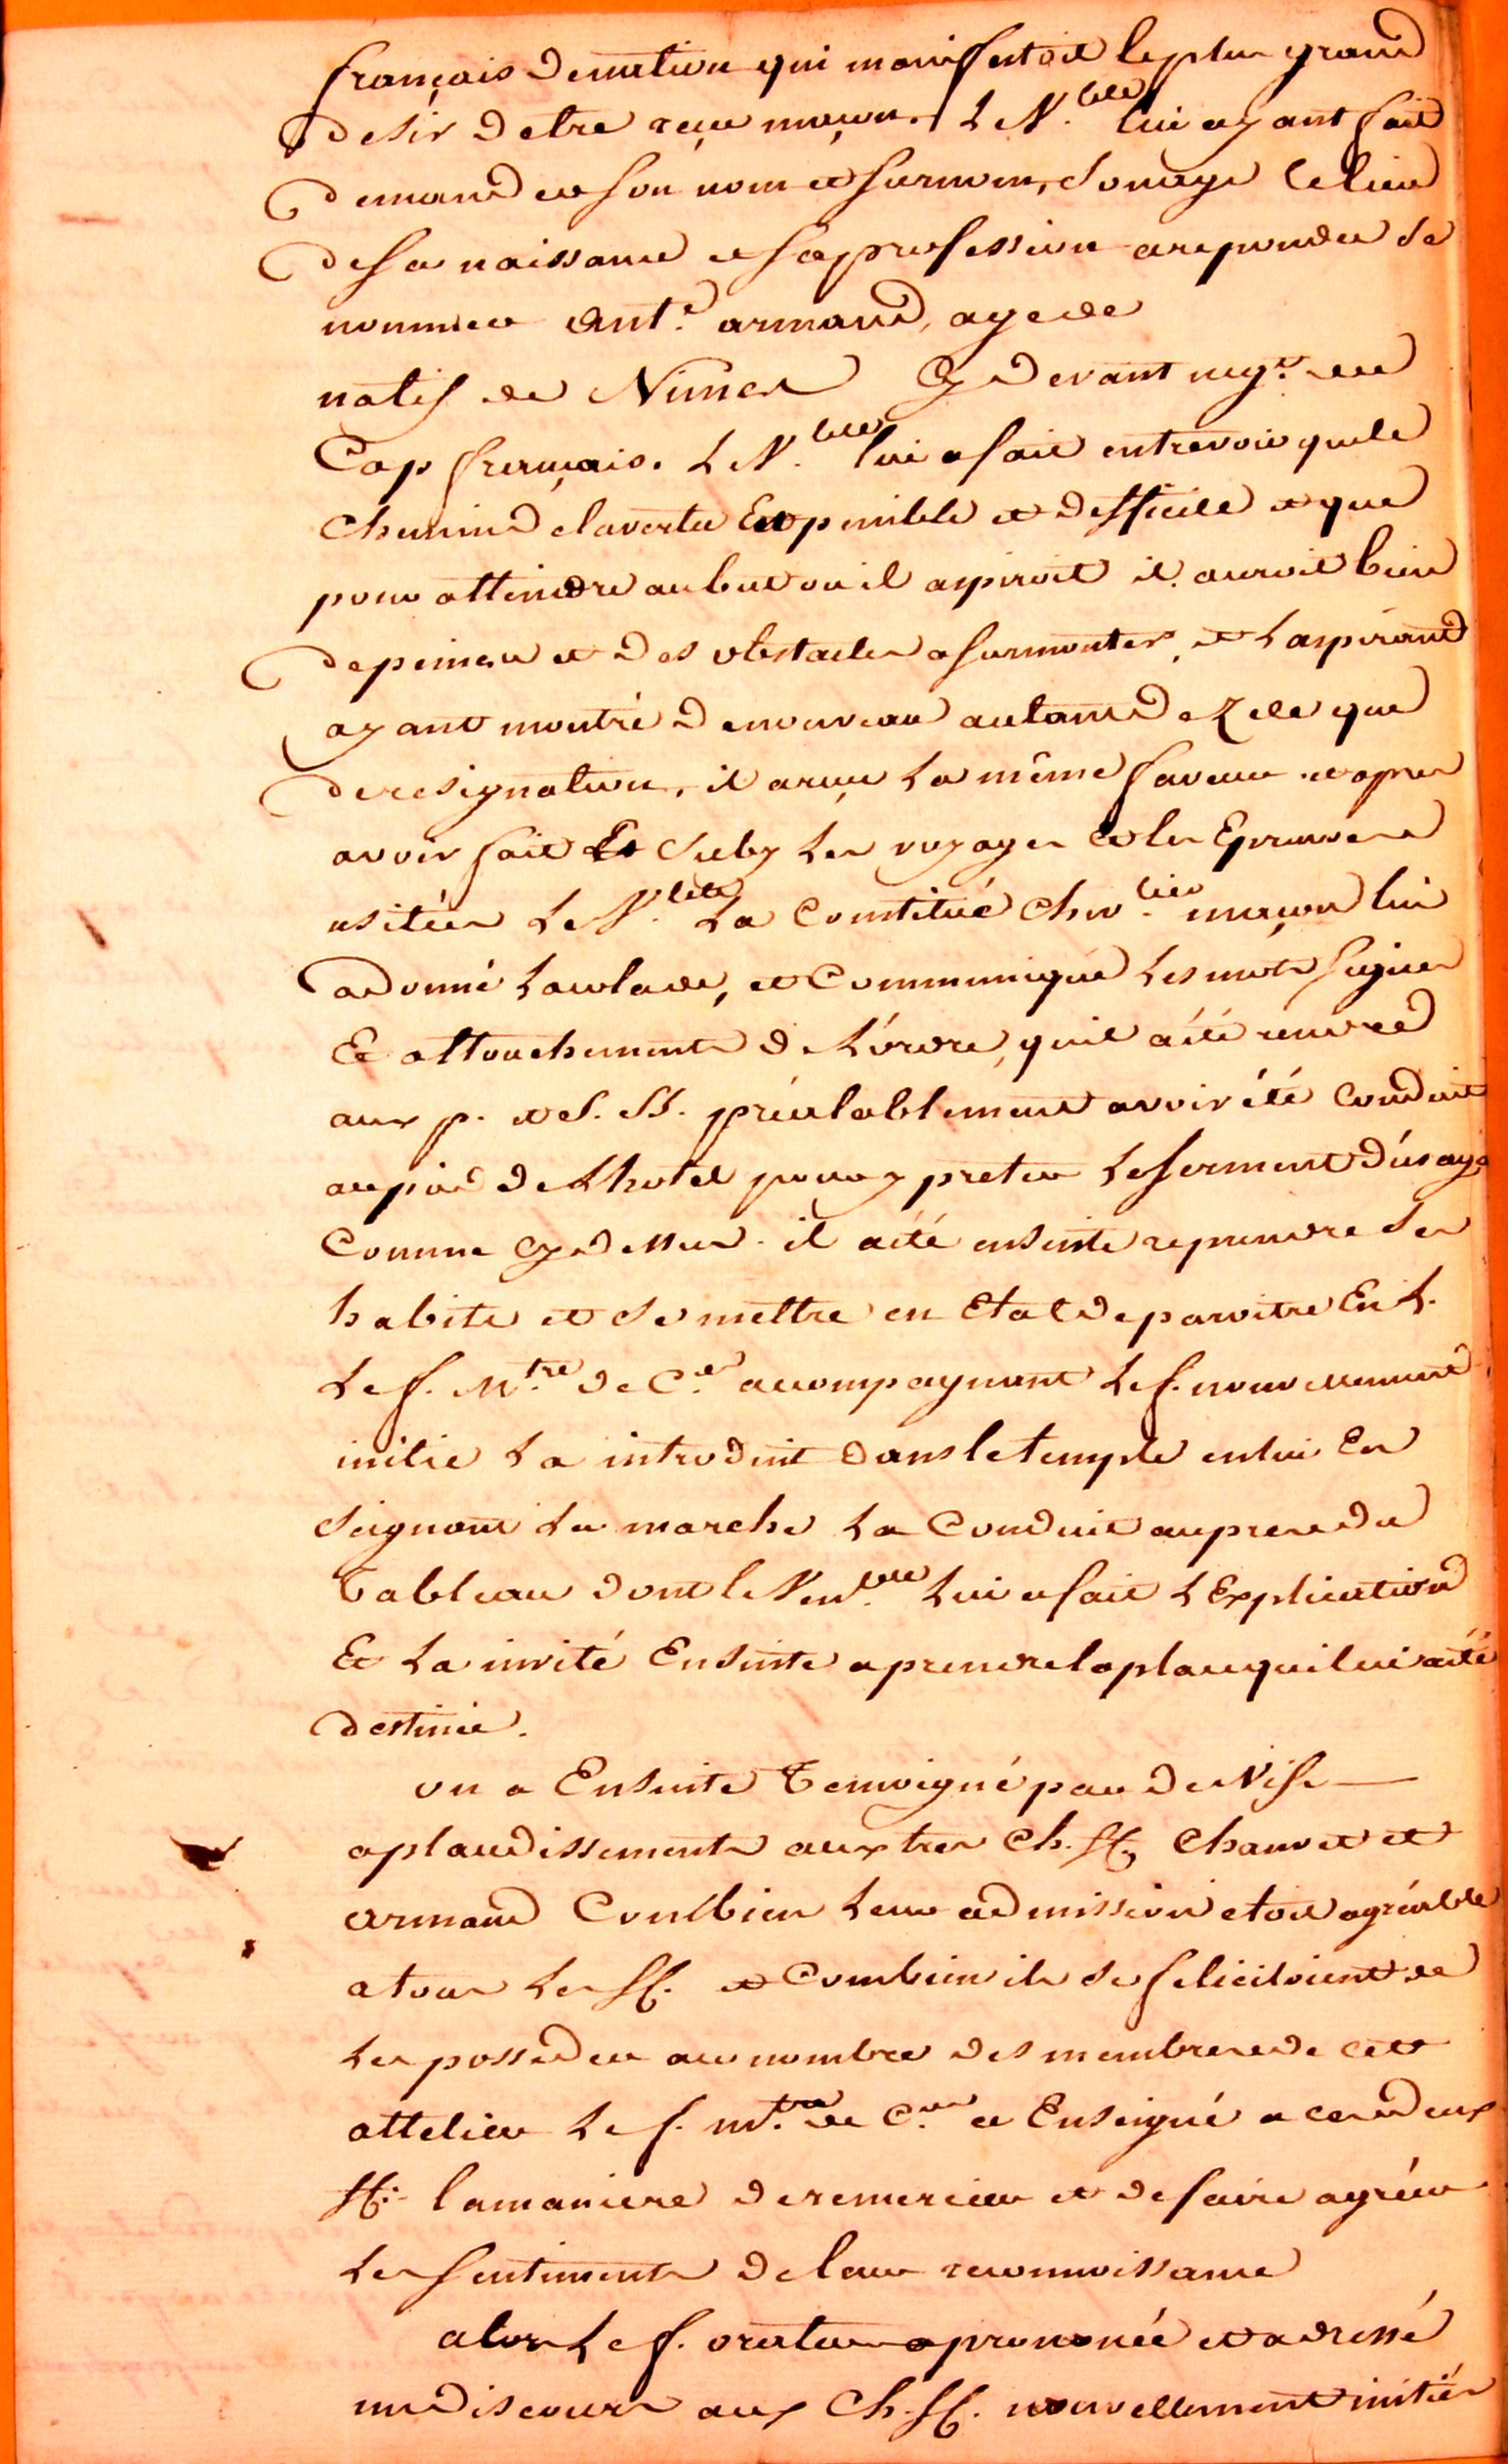 français de nation qui manifestoit le plus grand
desir d etre reçu maçon. Le V.ble lui ayant fait
demander son nom et surnom, son age le lieu
de sa naissance et sa profession a repondu se
nommer Ant.e armand, age de
natif de Nimes Cy devant neg.t au
Cap français. Le V.ble lui a fait entrevoir que le
chemin de la vertu Est penible et difficile et que
pour atteindre au but ou il aspiroit il auroit bien
de peines et des obstacles a surmonter, et l aspirant
ayant montré de nouveau autant de zele que
de resignation, il a reçu la même faveur et apres
avoir fait subÿ les voyages et les Epreuves
usitées le V.ble La Constitué Chev.lier maçon lui
a donné Lacolade, et Communiqué Les mots signes
Et attouchements de L'ordre, quil a été rendre
aux p. et S. SS. préalablement avoir été conduit
au pied de Lhotel pour y preter Le serment d'usage
Comme cy dessus. il a été ensuite reprendre ses
habits et se mettre en Etat de paroitre En L.
Le f. M.tre de C.ies accompagnant Le f. nouvellement
initie La introduit dans le temple en lui En
seignant La marche La Conduit aupres du
Tableau dont le Ven.ble Lui a fait L Explication
Et La invité Ensuite a prendre la place qui lui a été
destinée.
on a Ensuite Temoigné par de Vifs
aplaudissements aux tres Ch. ff. Chauvet et
armand Combien Leur admission etoit agréable
a tous Les ff. et Combien ils se felicitoient de
Les posseder au nombre des membres de cet
attelier Le f. M.tre de C.ies a Enseigné a ces deux
ff. la maniere de remercier et de faire agréer
Les sentiments de leur reconnoissance
alors Le f. orateur a prononcé et adressé
un discours aux Ch. ff. nouvellement initiés